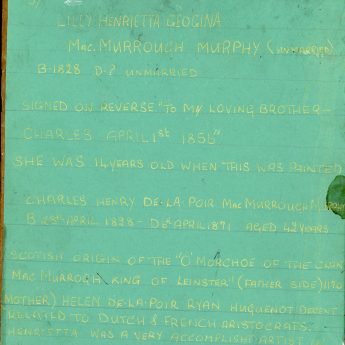 LILLY HENRIETTA GEOGINA
MAC. MURROUGH MURPHY (UNMARRIED)
B-1828 D-? UNMARRIED
SIGNED ON REVERSE "TO MY LOVING BROTHER-
CHARLES APRIL 1st 1856"
SHE WAS 14 YEARS OLD WHEN THIS WAS PAINTED
CHARLES HENRY DE-LA POIR MAC MURROUGH MURPHY
B 28th APRIL 1828 - D 6th APRIL 1871 AGED 42 YEARS
SCOTISH ORIGIN OF THE "O' MORCHOE OF THE CLAN
MAC MURROGH KING OF LEINSTER" (FATHER SIDE) 1170
MOTHER) HELEN DE-LA-POIR RYAN HUGUENOT DECENT
RELATED TO DUTCH & FRENCH ARISTOCRATS.
HENRIETTA WAS A VERY ACCOMPLISH ARTIST